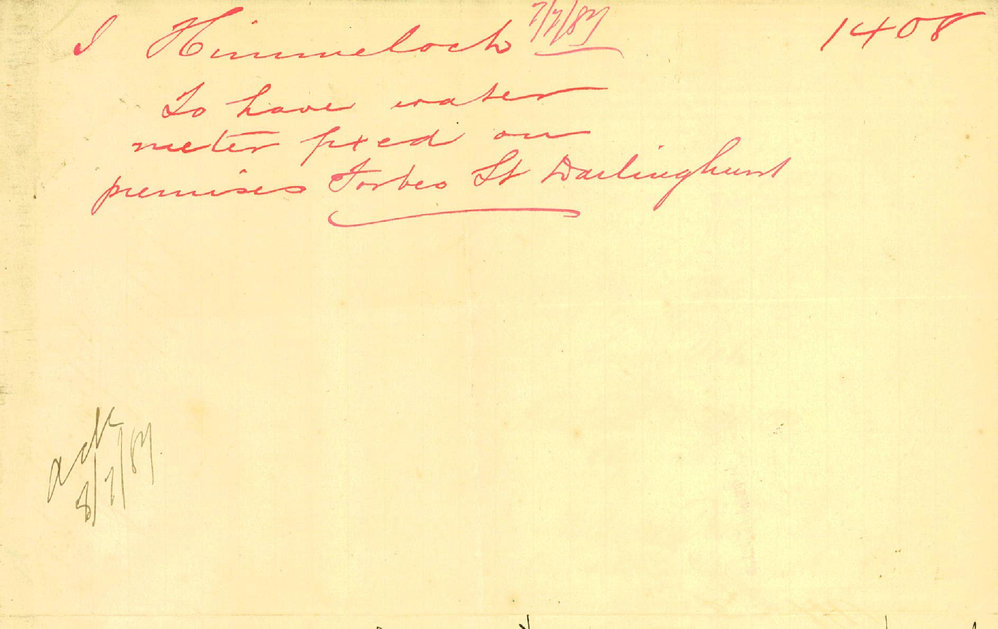 I Himmeloch 7/7/87 1408
To have water
meter fixed on
premises Forbes St Darlinghurst
ack
8/7/87